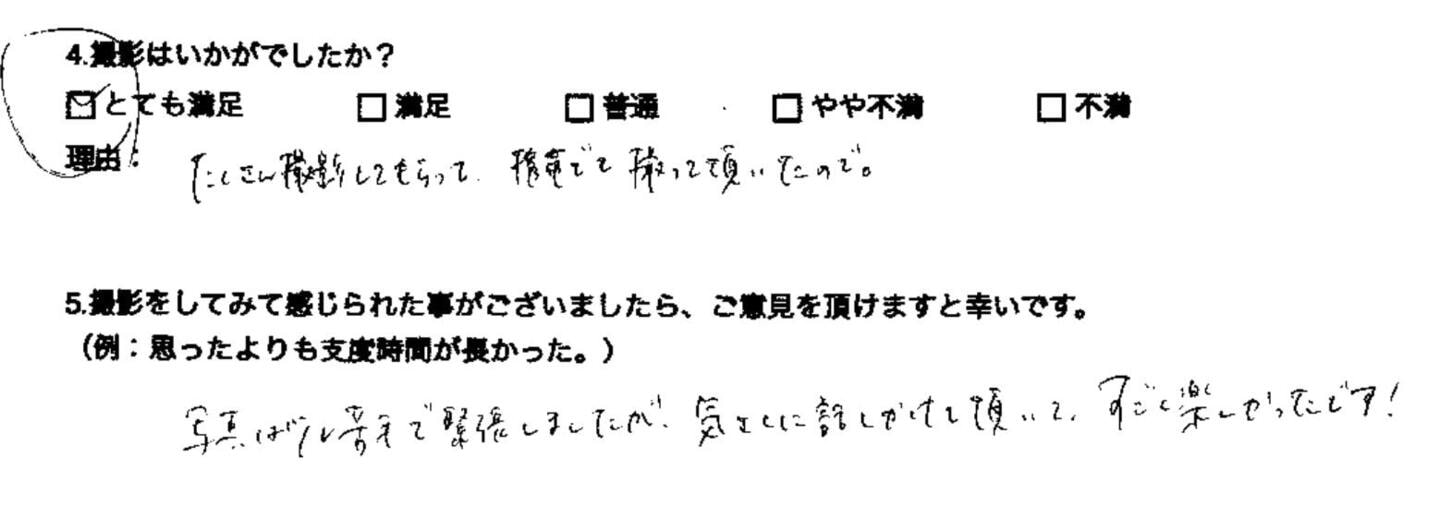 4.撮影はいかがでしたか？
☑とても満足 □満足 □普通 □やや不満 □不満
理由： たくさん撮影してもらって、携帯でも撮って頂いたので。
5.撮影をしてみて感じられた事がございましたら、ご意見を頂けますと幸いです。
（例：思ったよりも支度時間が長かった。）
写真は少し苦手で緊張しましたが、気さくに話しかけて頂いて、すごく楽しかったです！